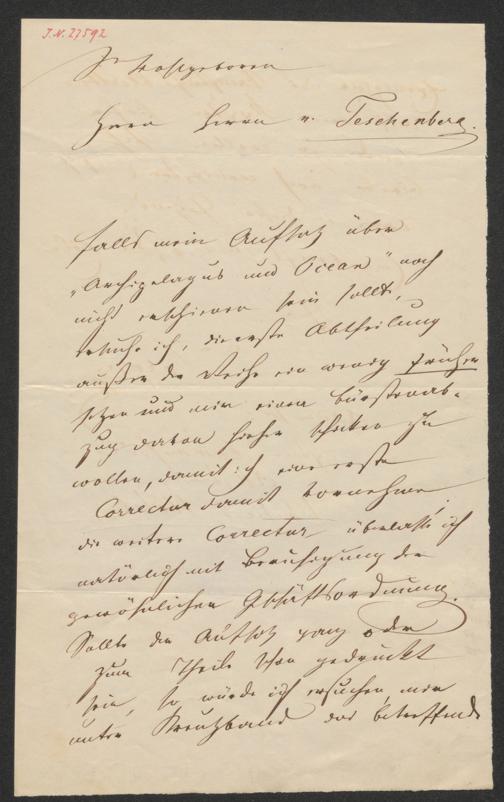 J.N. 27592
Sr Wohlgeboren
Herrn Herrn v. Teschenberg.
Falls mein Aufsatz über
„Archipelagus und Ocean" noch
nicht erschienen sein sollte,
ersuche ich, die erste Abtheilung
außer der Reihe ein wenig früher
setzen und mir einen Bürstenab-
zug davon hieher schicken zu
wollen, damit ich eine erste
Correctur damit vornehme.
die weitere Correctur überlasse ich
natürlich mit Beruhigung der
gewöhnlichen Geschäftsordnung.
Sollte der Aufsatz ganz oder
zum Theile schon gedruckt
sein, so würde ich ersuchen mir
unter Kreuzband das betreffende